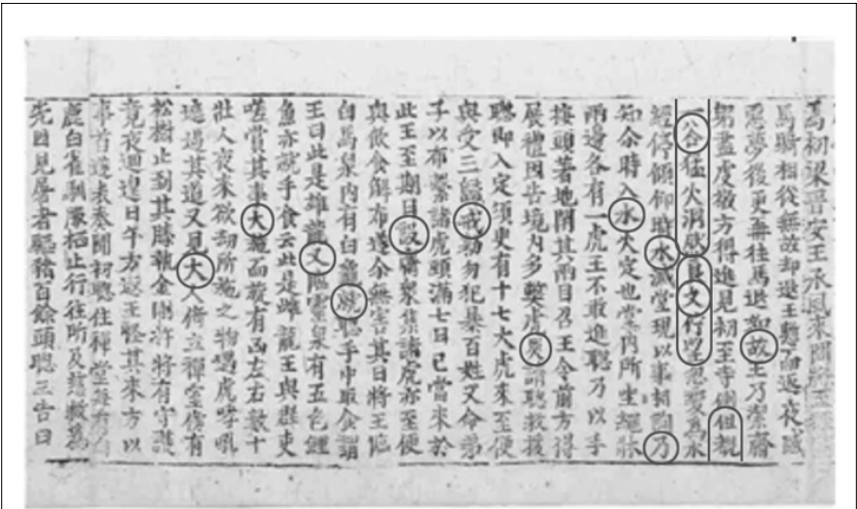 為初梁晉安王承風來問將至
馬騎相從無故却退王慙而返夜感
惡夢後更無往馬退如故王乃潔齋
躬盡虔敬方得進見初至寺側但覩
一谷猛火洞然良久忽變爲水
經停傾仰時水滅堂現以事相詢乃
知余時入水火定也堂內所坐繩牀
兩邊各有一虎王不敢進聰乃以手
按頭著地閉其兩目召王令前方得
展禮因告境內多弊虎災請聰救援
聰即入定須臾有十七大虎來至便
與受三歸戒勑勿犯暴百姓又命弟
子以布繫諸虎頭滿七日已當來於
此王至期日設齋衆集諸虎亦至便
與飲食解布遂余無害其日將王臨
白馬泉內有白龜就聰手中取食謂
王曰此是雄龍又臨靈泉有五色鯉
魚亦就手食云此是雌龍王與群吏
嗟賞其事大施而旋有凶左右數十
壯人夜來欲劫所施之物遇虎哮吼
遮遏其道又見大人倚立禪室傍有
松樹止到其膝執金剛杵將有守護
竟夜迴遑日午方返王怪其來方以
事首遂表奏聞初聰住禪堂每有白
鹿白雀馴服栖止行往所及慈救爲
先因見屠者驅猪百餘頭聰三告曰